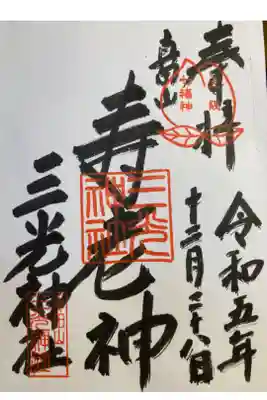 奉拝
令和五年
十二月二十八日
寿老神
三光神社
七福神
三光
神社